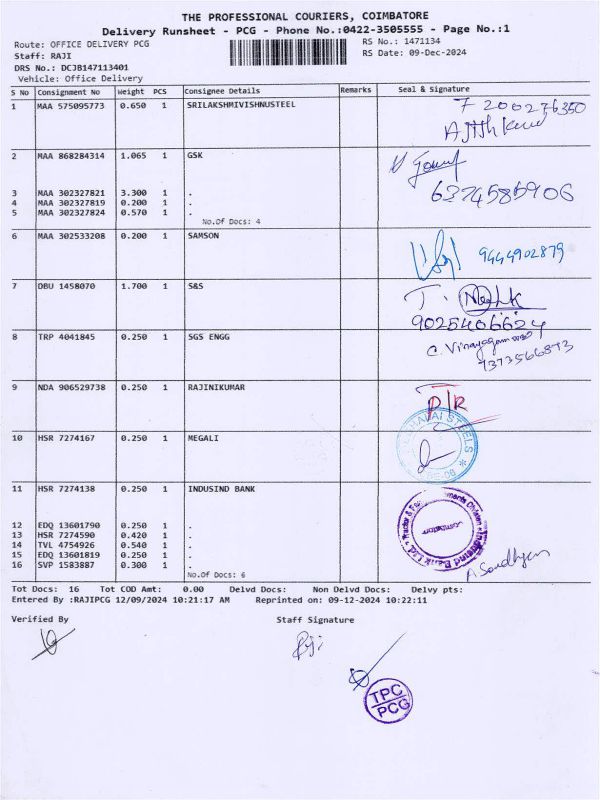 THE PROFESSIONAL COURIERS, COIMBATORE
Delivery Runsheet - PCG - Phone No.:0422-3505555 - Page No.:1
Route: OFFICE DELIVERY PCG
RS No.: 1471134
Staff: RAJI
RS Date: 09-Dec-2024
DRS No.: DCJB147113401
Vehicle: Office Delivery
S No Consignment No Weight PCS Consignee Details Remarks Seal & Signature
1 MAA 575095773 0.650 1 SRILAKSHMIVISHNUSTEEL
2 MAA 868284314 1.065 1 GSK
6374585906
3 MAA 302327821 3.300 1 .
4 MAA 302327819 0.200 1 .
5 MAA 302327824 0.570 1 .
No.Of Docs: 4
6 MAA 302533208 0.200 1 SAMSON
9444902879
7 DBU 1458070 1.700 1 S&S
9025406624
8 TRP 4041845 0.250 1 SGS ENGG
7373566873
9 NDA 906529738 0.250 1 RAJINIKUMAR
10 HSR 7274167 0.250 1 MEGALI
STEELS
11 HSR 7274138 0.250 1 INDUSIND BANK
IndusInd Bank Ltd.
12 EDQ 13601790 0.250 1 .
13 HSR 7274590 0.420 1 .
14 TVL 4754926 0.540 1 .
15 EDQ 13601819 0.250 1 .
16 SVP 1583887 0.300 1 .
No.Of Docs: 6
Tot Docs: 16 Tot COD Amt: 0.00 Delvd Docs: Non Delvd Docs: Delvy pts:
Entered By :RAJIPCG 12/09/2024 10:21:17 AM Reprinted on: 09-12-2024 10:22:11
Verified By Staff Signature
TPC
PCG